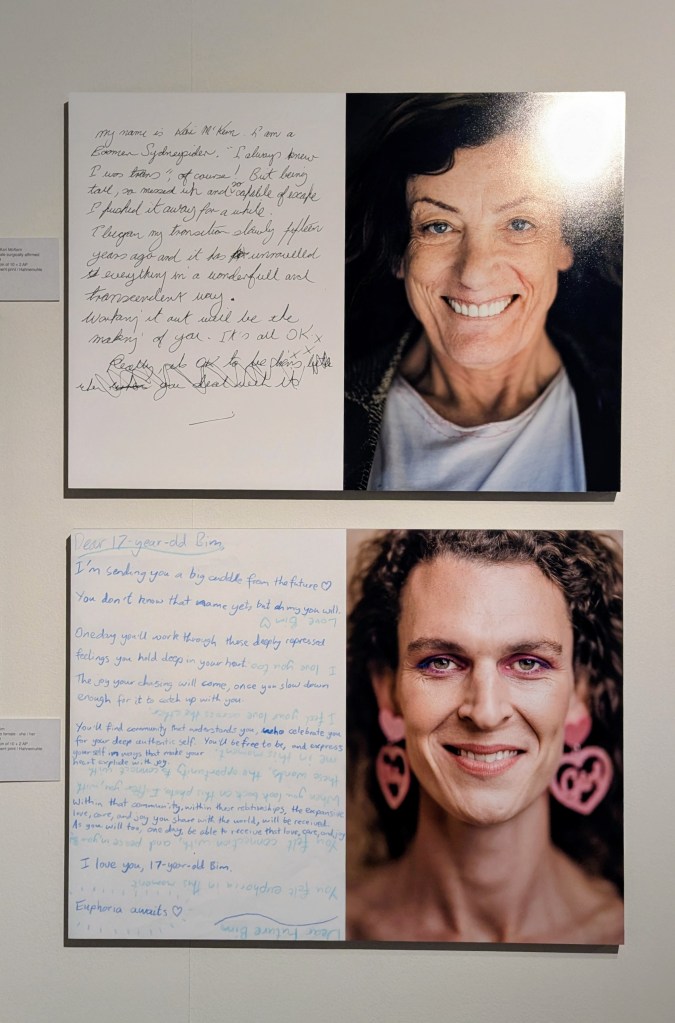 my name is Wae McKern. I am a
Boomer Sydneysider. "I always knew
I was trans", of course! But being
tall, so messed up and so capable of escape
I pushed it away for a while.
I began my transition slowly fifteen
years ago and it has unravelled
everything in a wonderfull and
transcendent way.
Working it out will be the
making of you. It's all OK x
x x
Really its OK to be
when you deal with it
Dear 17-year-old Bim,
I'm sending you a big cuddle from the future ♡
You don't know that name yet, but oh my you will.
Love Bim ♡
One day you'll work through those deeply repressed
feelings you hold deep in your heart
I love you too
The joy your chasing will come, once you slow down
enough for it to catch up with you
I feel your love across the
You'll find community that understands you, who celebrate you
for your deep authentic self. You'll be free to be, and express
yourself in ways that make your
me in this moment.
heart explode with joy.
these words the opportunity to connect with
When you look back on this photo I offer you with
Within that community, within their relationships, the expansive
love, care, and joy you share with the world, will be received.
As you will too, one day, be able to receive that love, care, and joy
You felt connection with, and pride in you
I love you, 17-year-old Bim.
You felt euphoria in this moment
Euphoria awaits ♡
Dear Future Bim